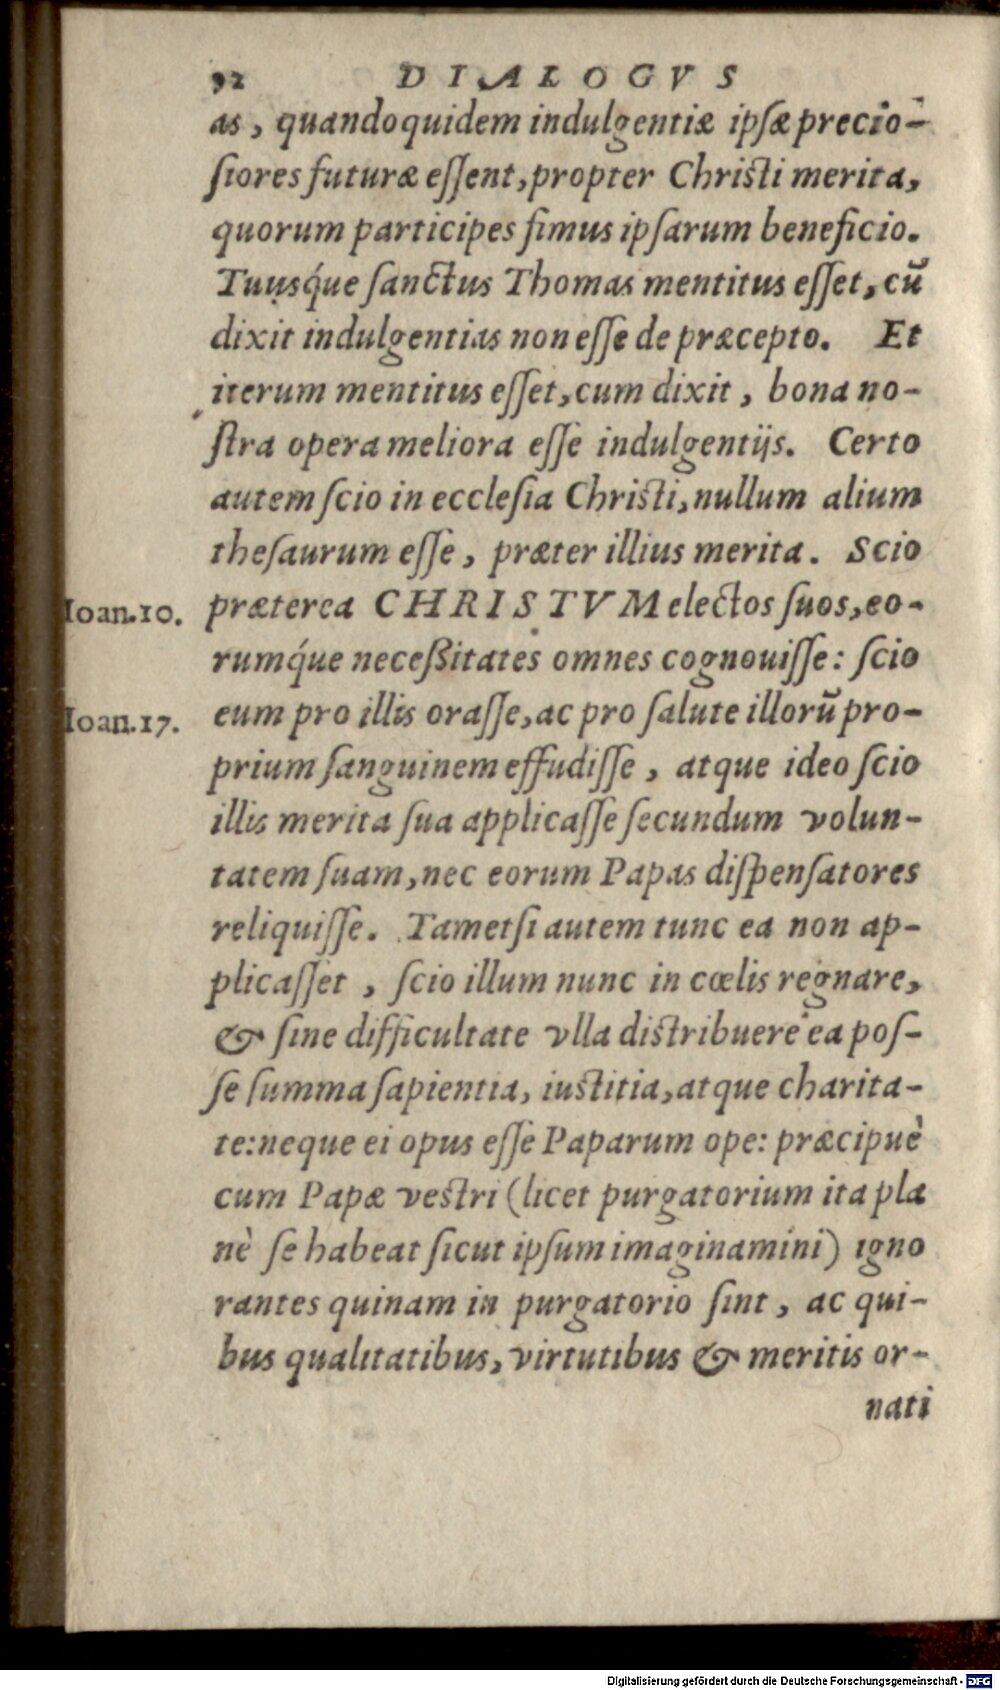 92 DIALOGVS
as, quandoquidem indulgentiæ ipsæ precio-
siores futuræ essent, propter Christi merita,
quorum participes simus ipsarum beneficio.
Tuusq́ue sanctus Thomas mentitus esset, cũ
dixit indulgentias non esse de præcepto. Et
iterum mentitus esset, cum dixit, bona no-
stra opera meliora esse indulgentijs. Certo
autem scio in ecclesia Christi, nullum alium
thesaurum esse, præter illius merita. Scio
Ioan.10. præterea CHRISTVM electos suos, eo-
rumq́ue neceßitates omnes cognouisse: scio
Ioan.17. eum pro illis orasse, ac pro salute illorũ pro-
prium sanguinem effudisse, atque ideo scio
illis merita sua applicasse secundum volun-
tatem suam, nec eorum Papas dispensatores
reliquisse. Tametsi autem tunc ea non ap-
plicasset, scio illum nunc in cœlis regnare,
& sine difficultate vlla distribuere ea pos-
se summa sapientia, iustitia, atque charita-
te: neque ei opus esse Paparum ope: præcipuè
cum Papæ vestri (licet purgatorium ita pla
nè se habeat sicut ipsum imaginamini) igno
rantes quinam in purgatorio sint, ac qui-
bus qualitatibus, virtutibus & meritis or-
nati
Digitalisierung gefördert durch die Deutsche Forschungsgemeinschaft - DFG